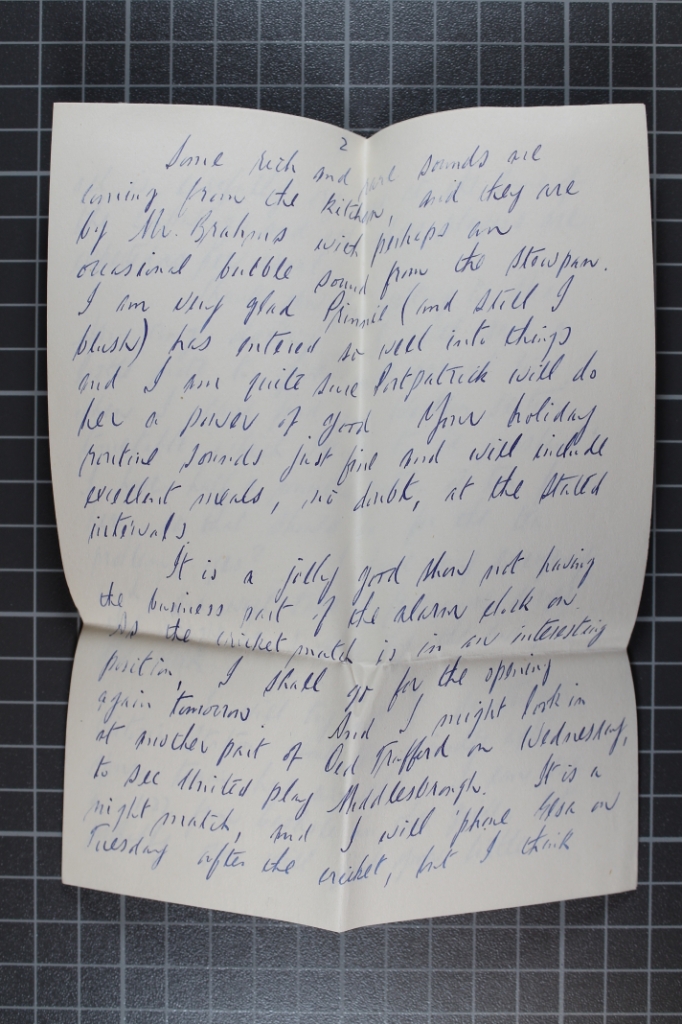 2
Some rich and rare sounds are
coming from the kitchen, and they are
by Mr. Brahms with perhaps an
occasional bubble sound from the stewpan.
I am very glad (and still I
blush) has entered so well into things
and I am quite sure Portpatrick will do
her a power of good Your holiday
routine sounds just fine and will include
excellent meals, no doubt, at the stated
intervals.
It is a jolly good show not having
the business part of the alarm clock on.
As the cricket match is in an interesting
position, I shall go for the opening
again tomorrow. And I might look in
at another part of Old Trafford on Wednesday,
to see United play Middlesbrough. It is a
night match, and I will 'phone on
Tuesday after the cricket, but I think